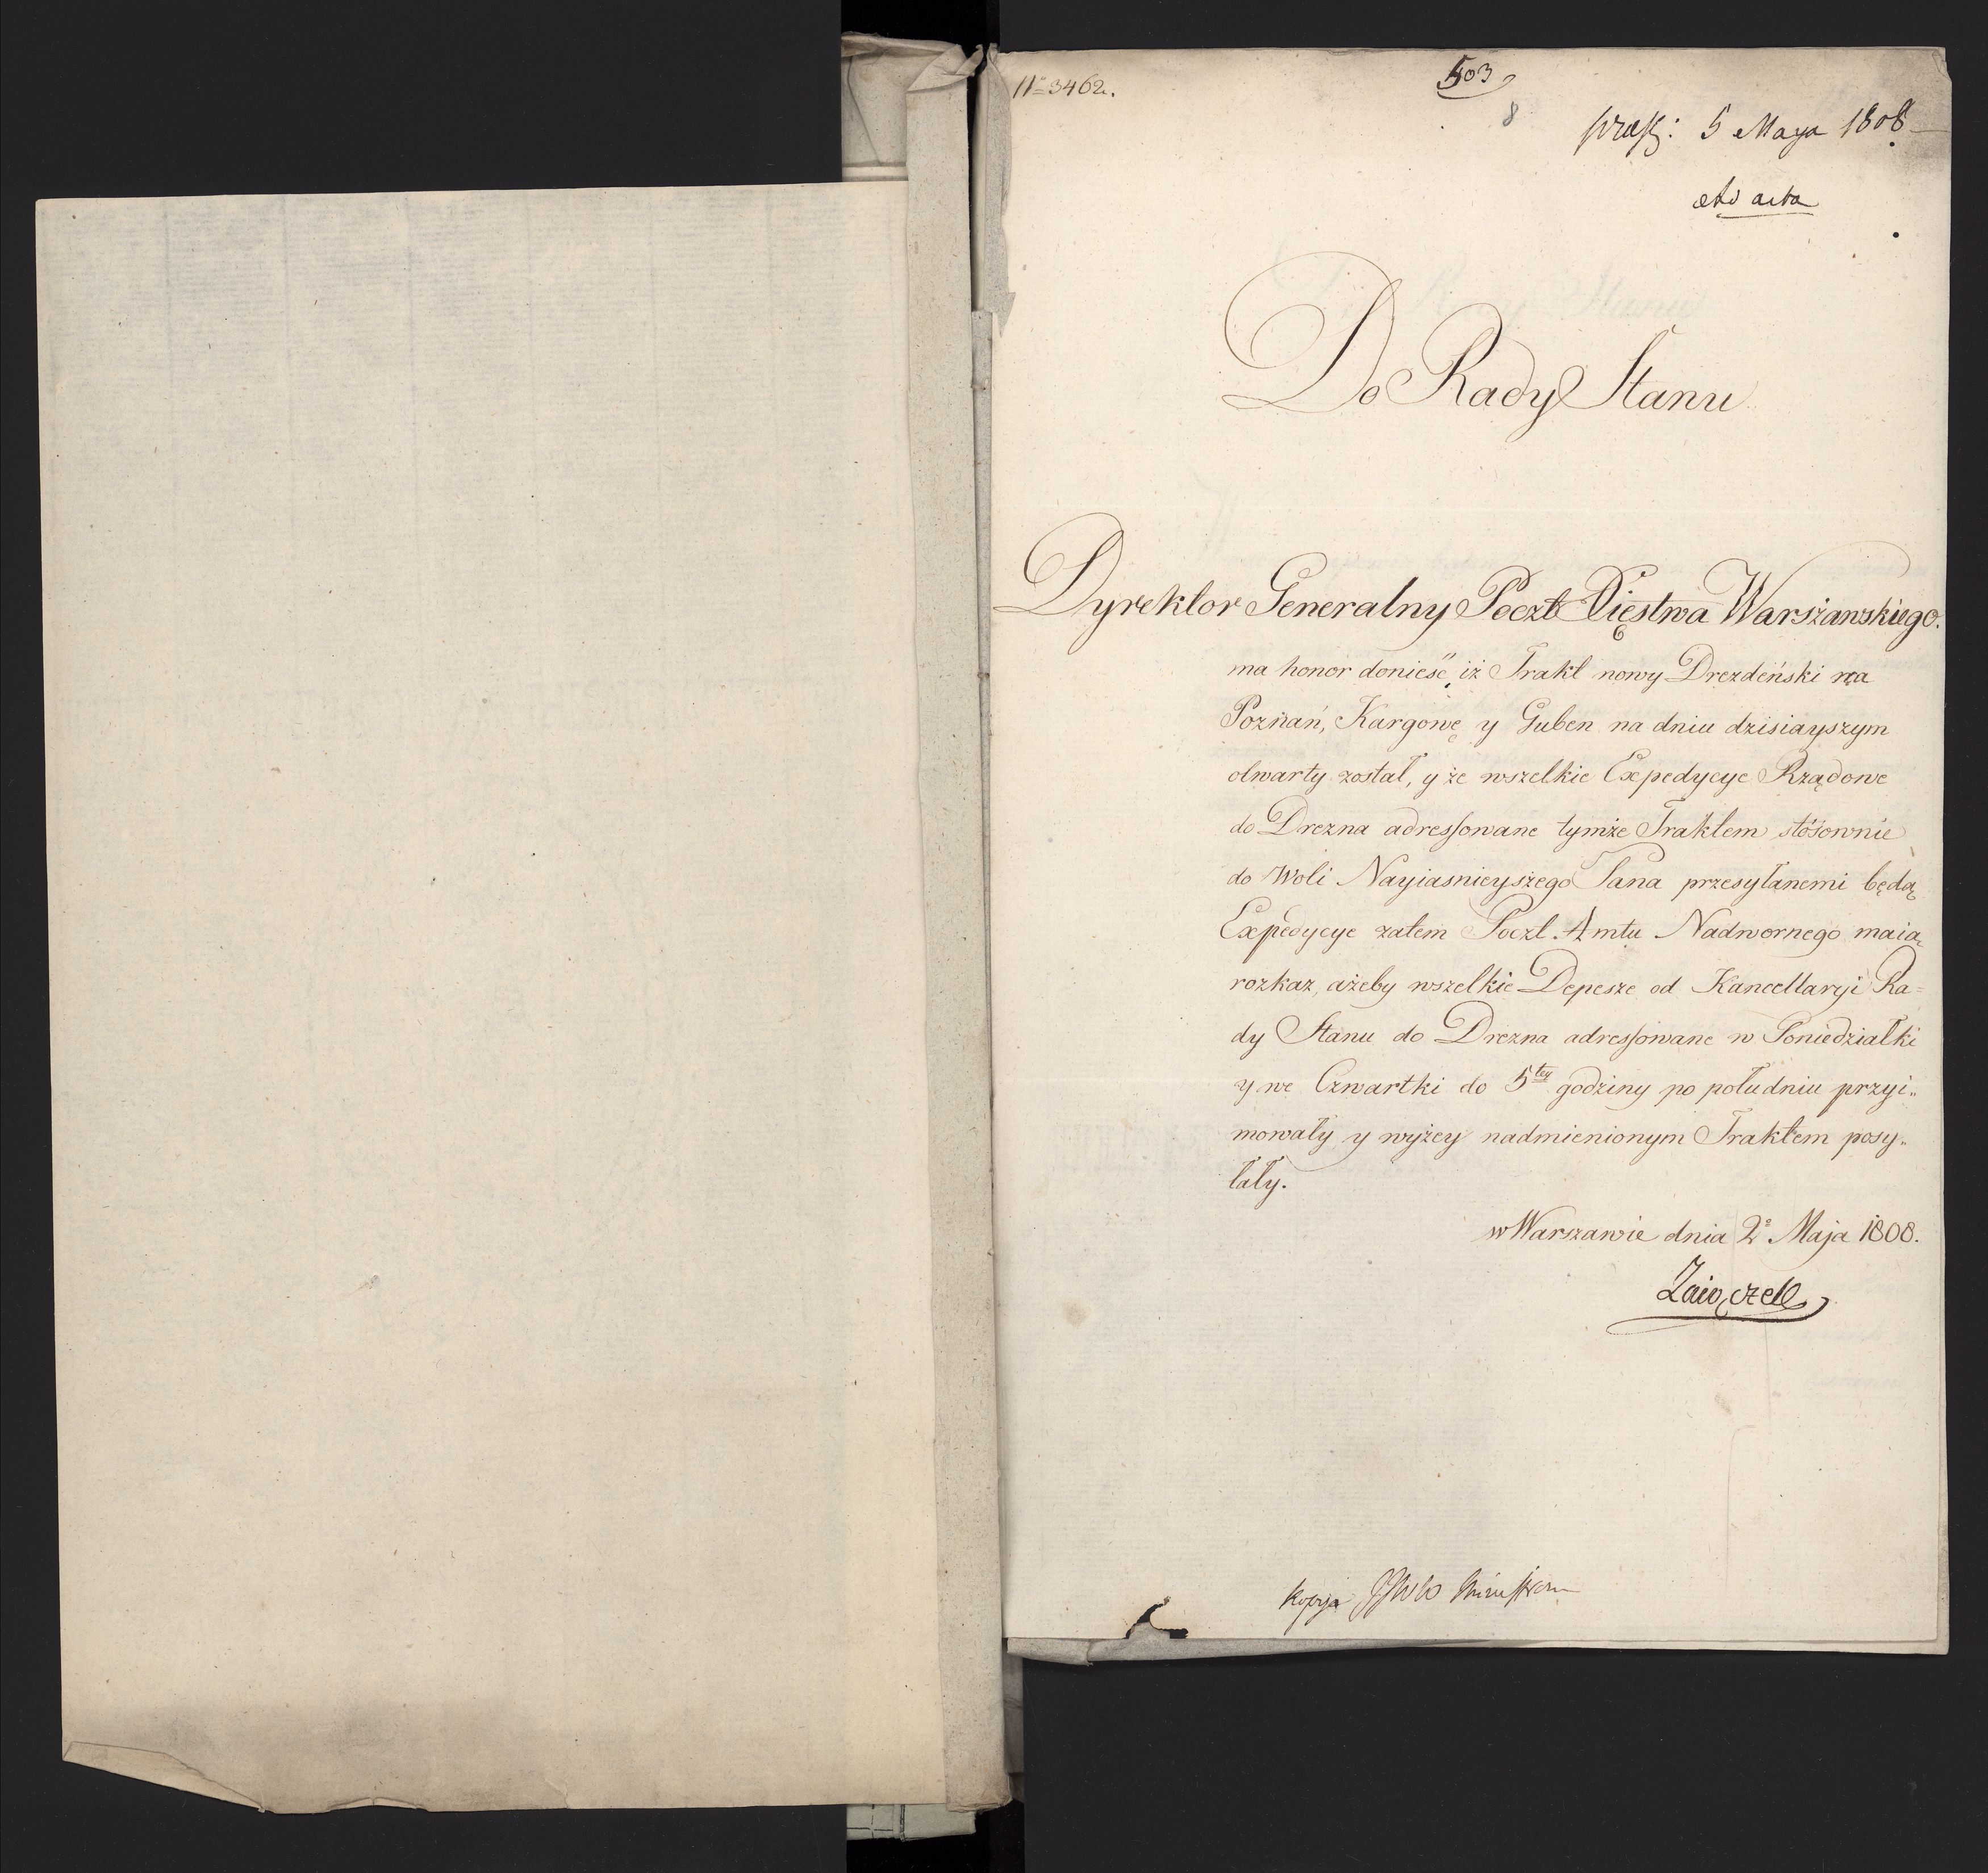 No 3462.
503
8
præs: 5 Maya 1808
Ad acta
Do Rady Stanu
Dyrektor Generalny Poczt Xięstwa Warszawskiego.
ma honor donieść, iż Trakt nowy Drezdeński na
Poznań, Kargowę y Guben na dniu dzisiayszym
otwarty został, y że wszelkie Expedycye Rządowe
do Drezna adressowane tymże Traktem stósownie
do Woli Nayiasnieyszego Pana przesyłanemi będą
Expedycye zatem Poczt Amtu Nadwornego maią
rozkaz, ażeby wszelkie Depesze od Kancellaryi Ra=
dy Stanu do Drezna adressowane w Poniedziałki
y we Czwartki do 5tey godziny po południu przyi„
mowały y wyżey nadmienionym Traktem posy„
łały.
w Warszawie dnia 2o Maja 1808.
Zaiączek
Kopija Ministrom